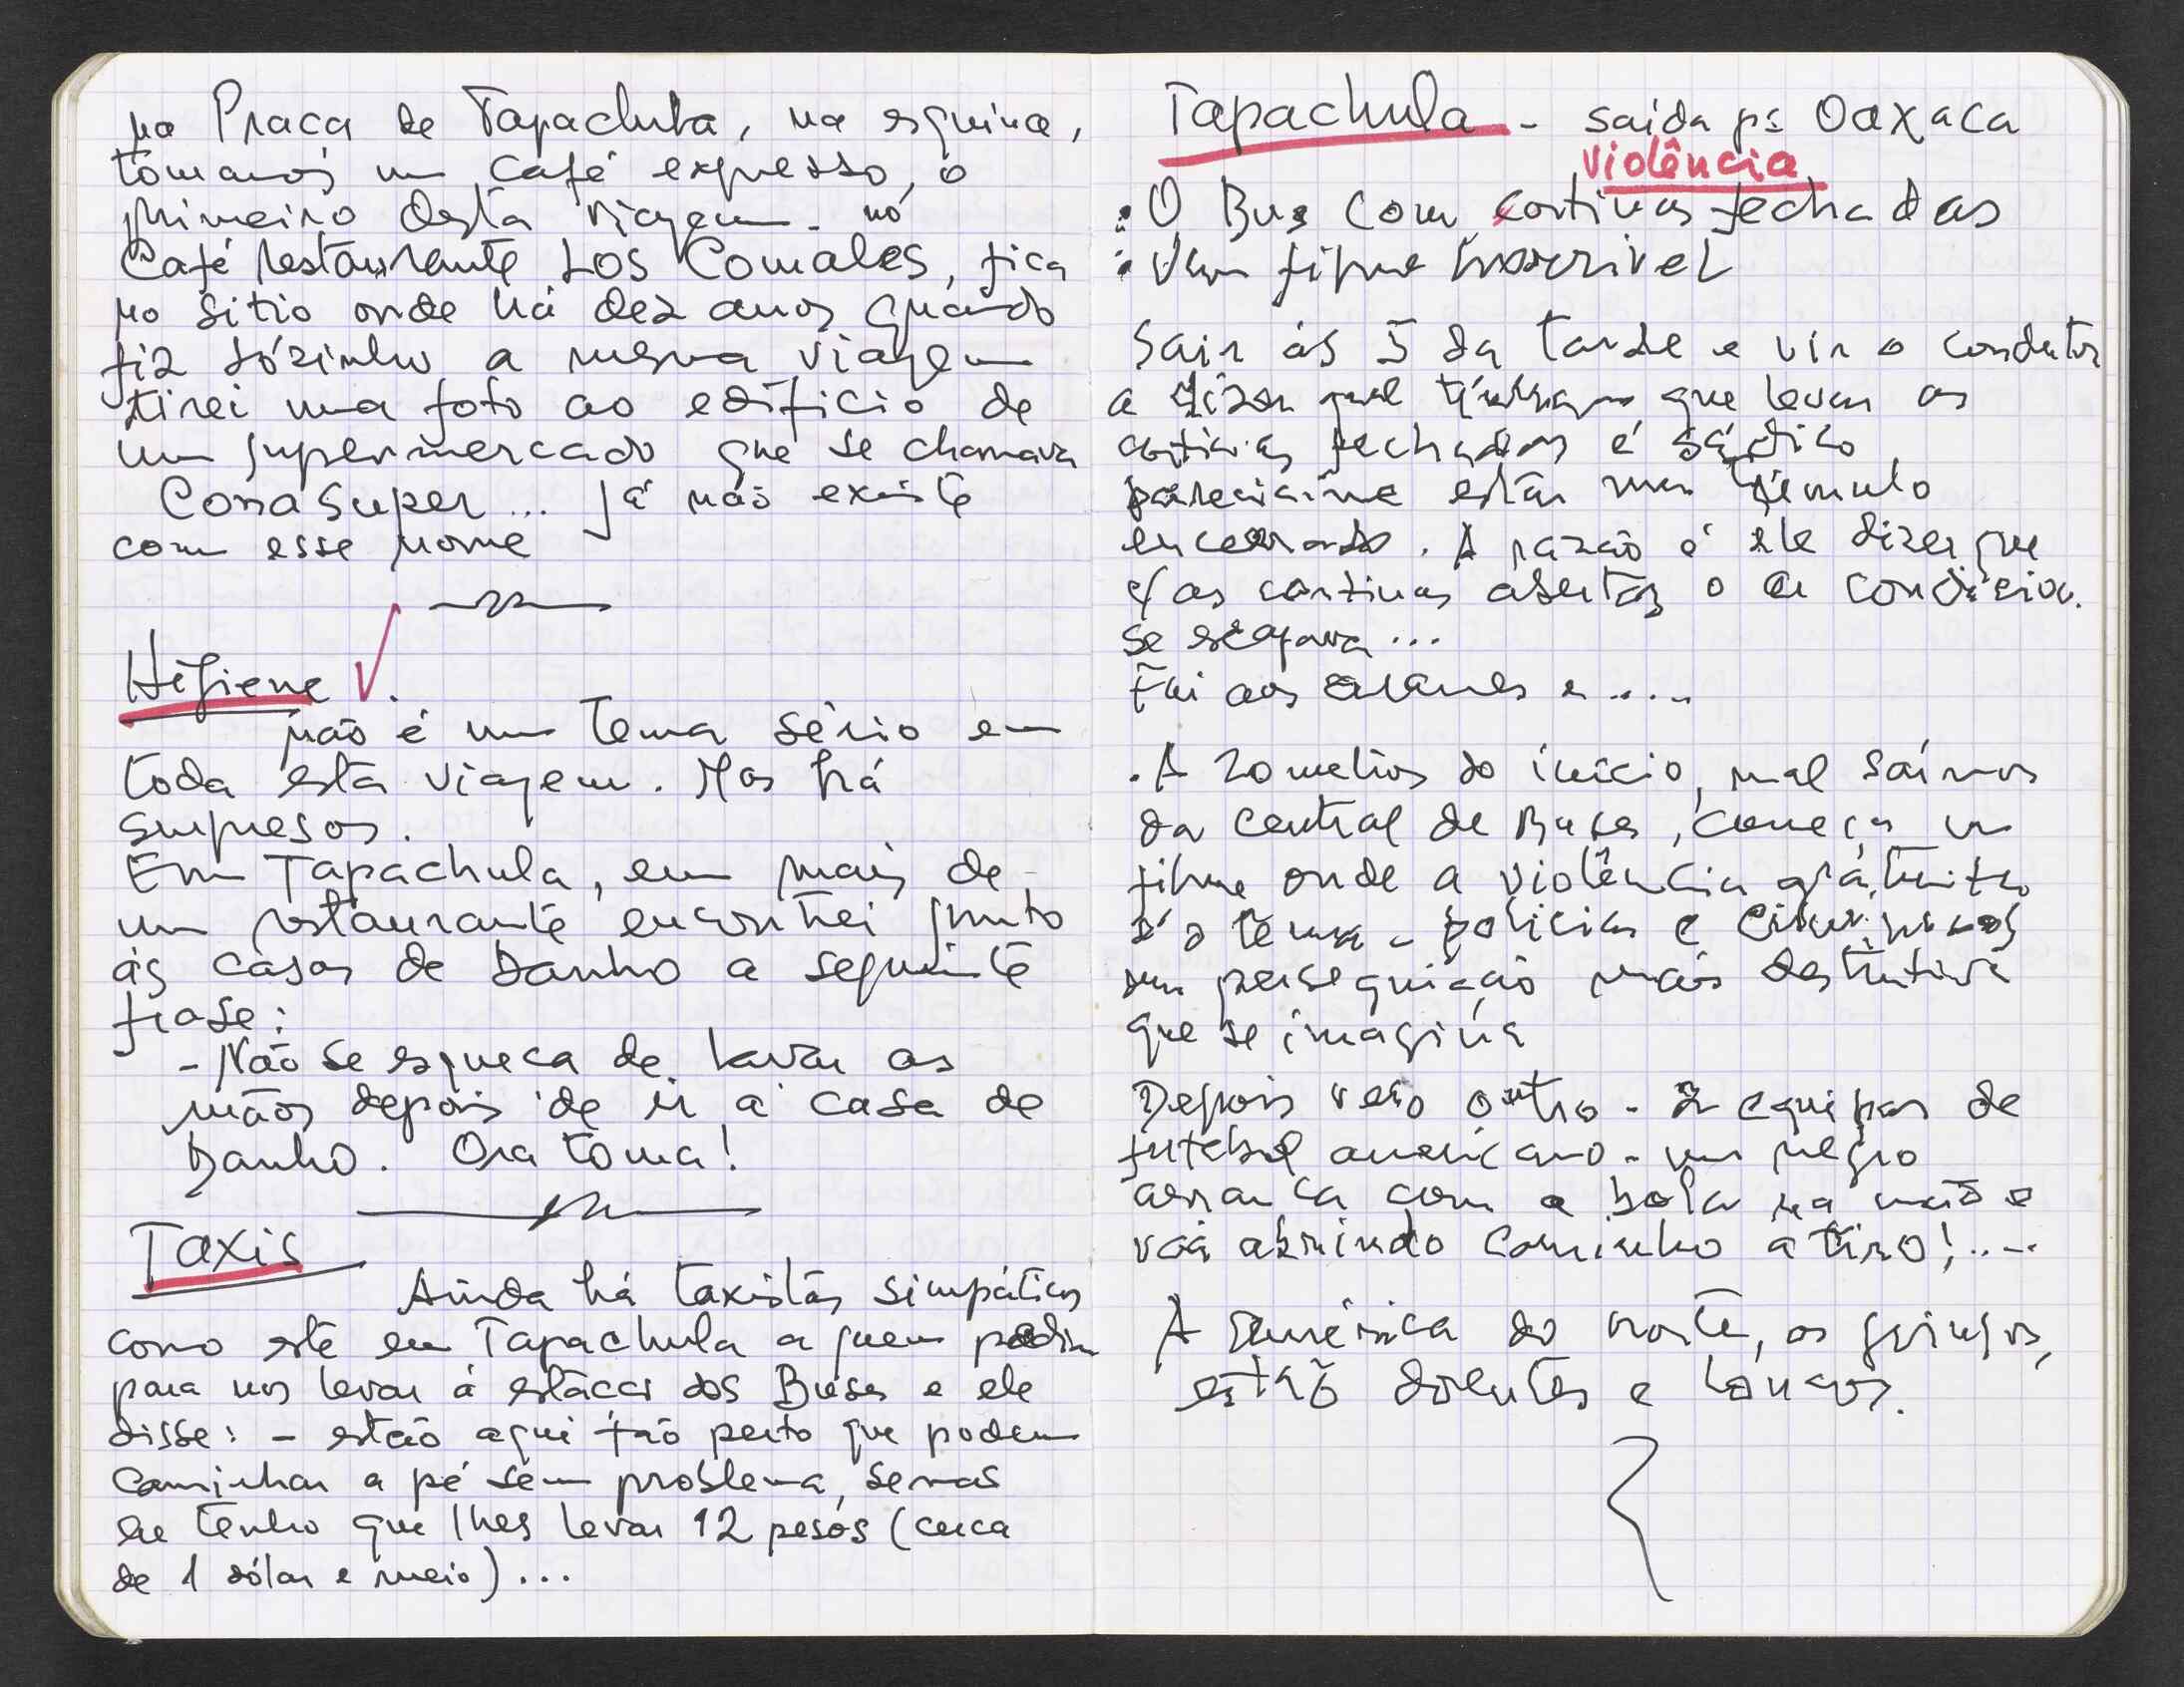 na Praça de Tapachula, na esquina,
tomamos um café expresso, o
primeiro desta viagem - no
Café restaurante Los Comales, fica
no sitio onde há dez anos quando
fiz sózinho a mesma viagem
tirei uma foto ao edificio de
um supermercado que se chamava
Conasuper... já não existe
com esse nome
Higiene ✓.
não é um tema sério em
toda esta viagem. Mas há
surpresas.
Em Tapachula, em mais de
um restaurante encontrei junto
ás casas de banho a seguinte
frase:
- Não se esqueca de lavar as
mãos depois de ir á casa de
banho. Ora toma!
Taxis
Ainda há taxistas simpáticos
como este em Tapachula a quem pedim
para nos levar á estacao dos Buses e ele
disse: - estão aqui tão perto que podem
caminhar a pé sem problema, se mas
eu tenho que lhes levar 12 pesos (cerca
de 1 dólar e meio)...
Tapachula - saida pª Oaxaca
violência
: O Bus com cortinas fechadas
: Um filme horrivel
Sair ás 5 da tarde e vir o condutor
a dizer que tinham que levar as
cortinas fechadas é sádico
parecia-me estar num túmulo
encerrado. A razão é ele dizer que
c/ as cortinas abertas o ar condicion.
se escapava...
Fui aos arames e ....
. A 20 metros do início, mal saímos
da central de Buses, começa um
filme onde a violência gratuita
é o tema - policias e criminosos
em perseguição mais destrutiva
que se imagina
Depois veio outro - 2 equipas de
futebol americano - um negro
arranca com a bola na mão e
vai abrindo caminho a tiro!....
A américa do norte, os gringos,
estão doentes e loucos.